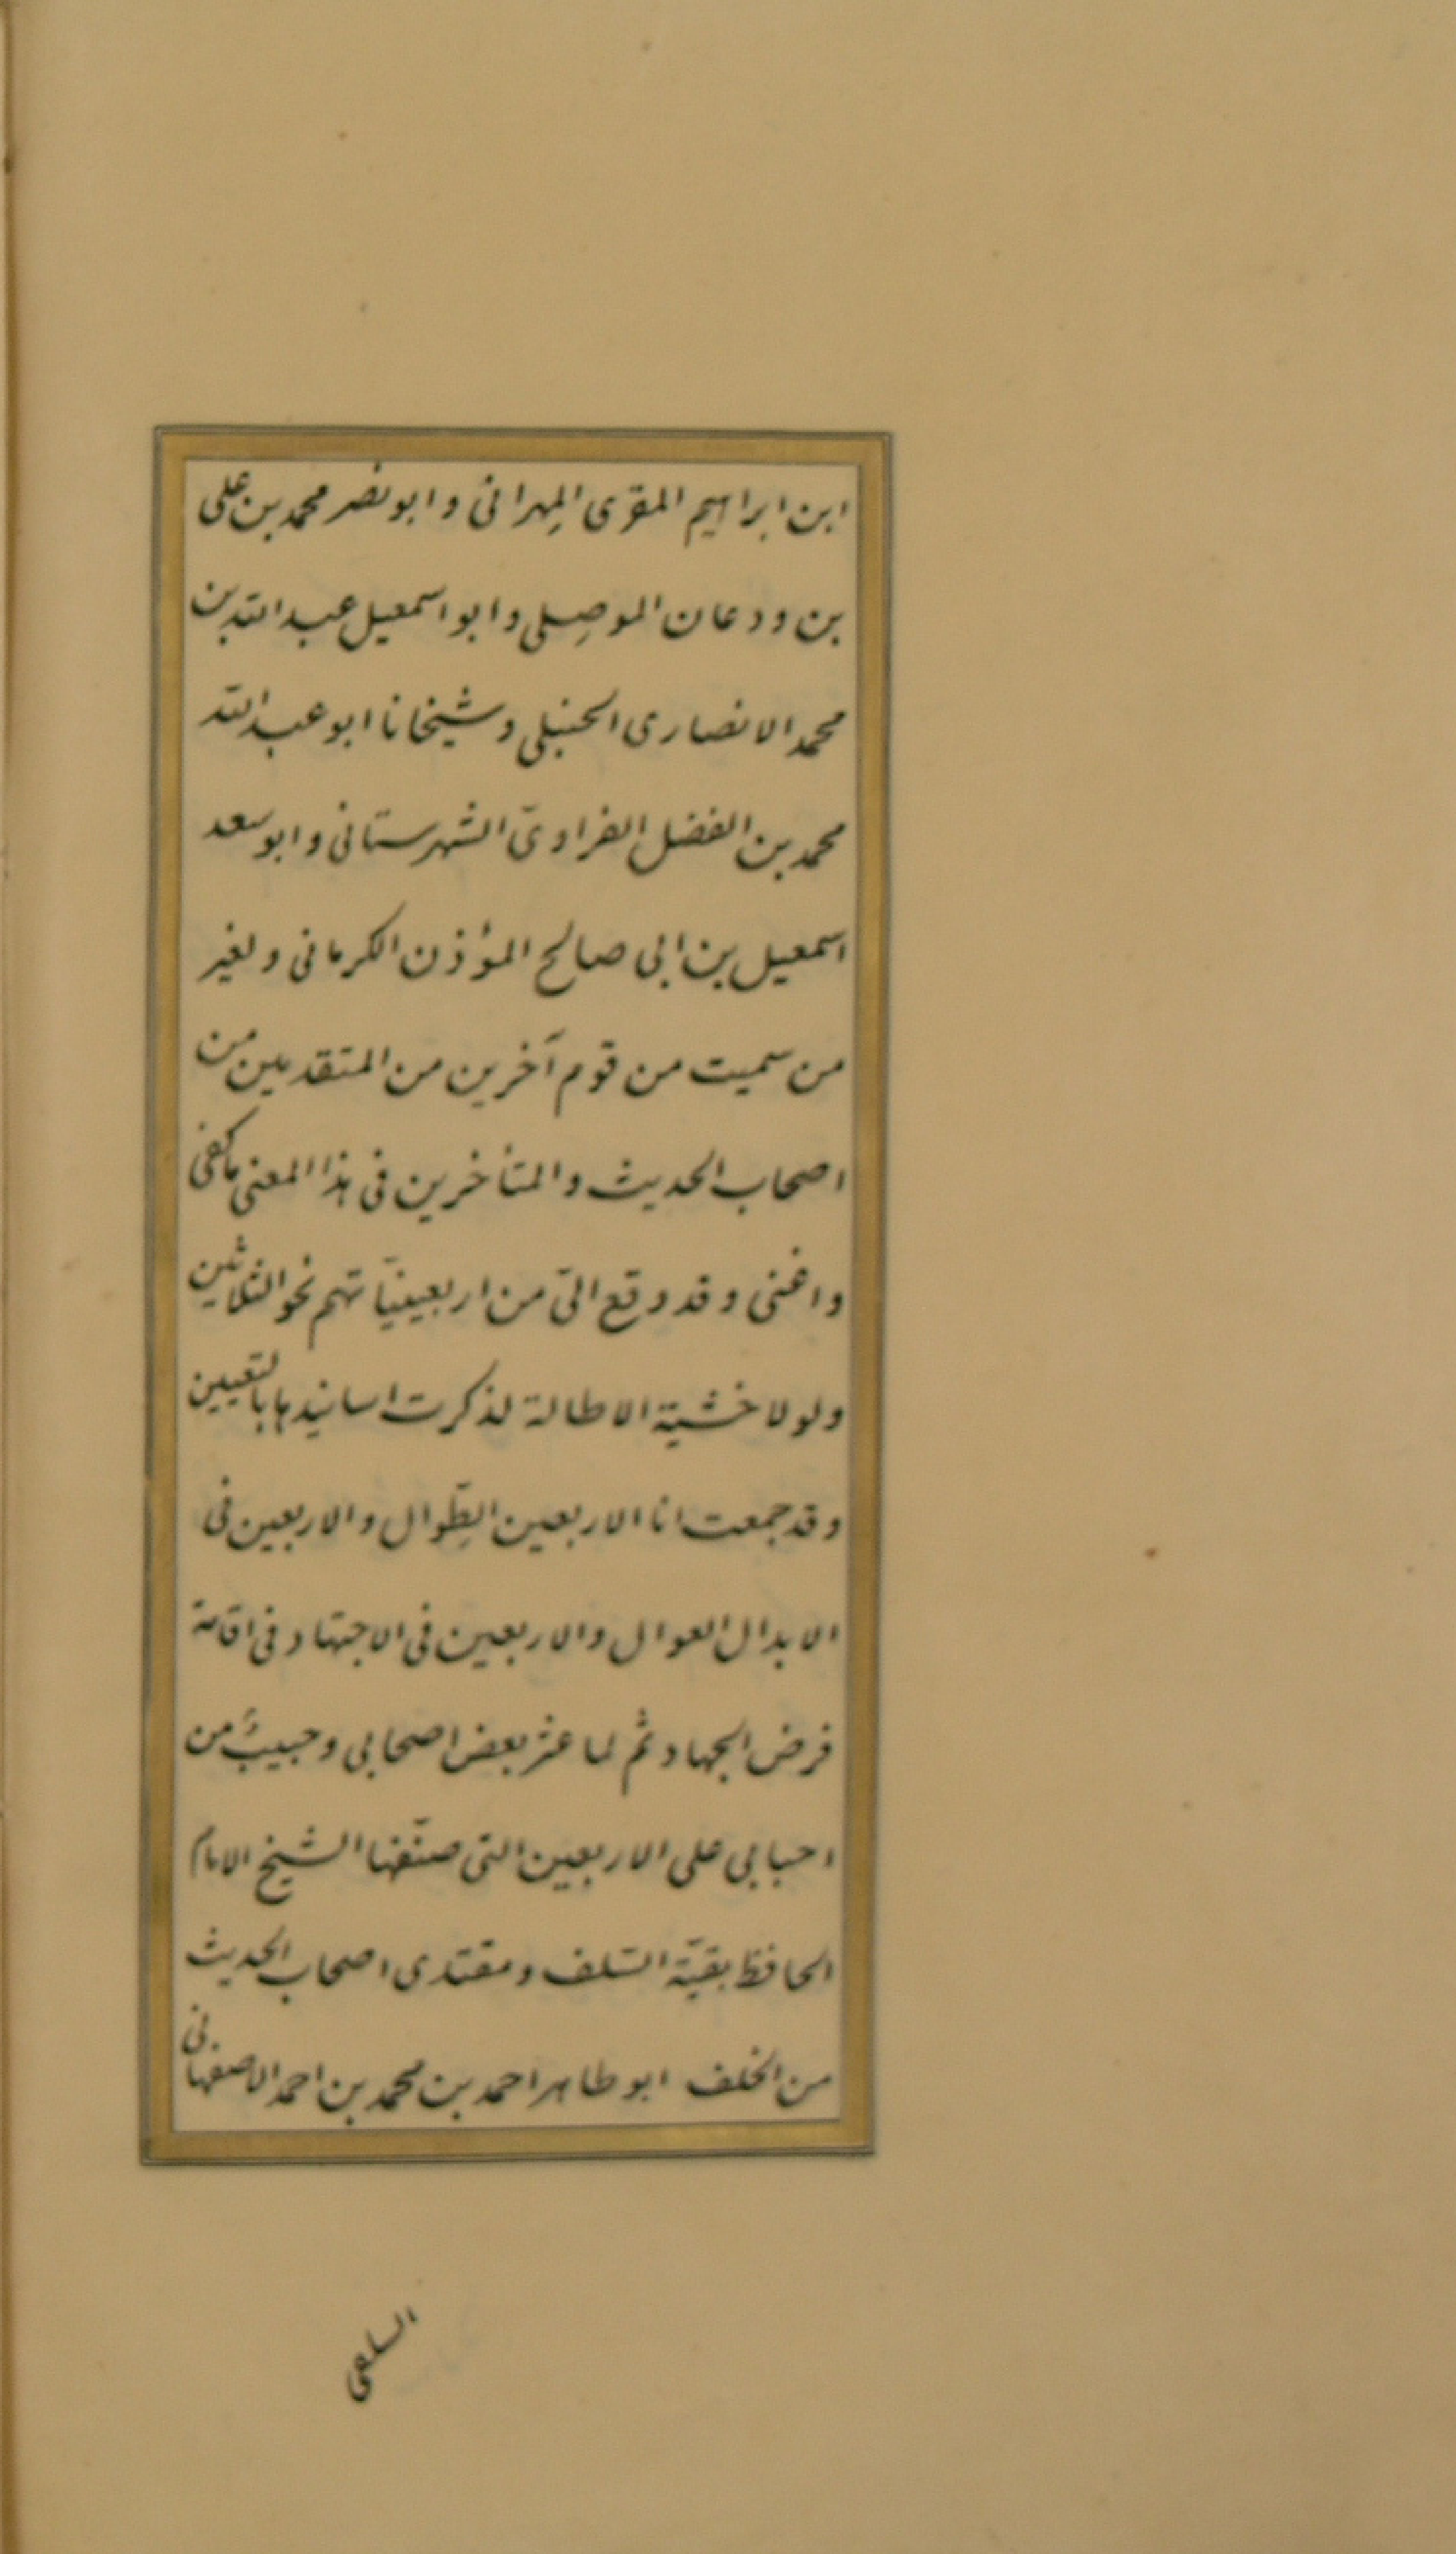 ابن ابراهيم المقرى المِهرانى و ابو نصر محمد بن على
بن ودعان الموصِلى و ابو اسمعيل عبد الله بن
محمد الانصارى الحنبلى و شيخانا ابو عبد الله
محمد بن الفضل الفراوىّ الشهرستانى و ابو سعد
اسمعيل بن ابى صالح المؤذن الكرمانى و لغير
من سميت من قوم آخرين من المتقدمين من
اصحاب الحديث و المتأخرين فى هذا المعنى ما كفى
و اغنى و قد وقع الىّ من اربعينيّاتهم نحو الثلاثين
و لولا خشية الاطالة لذكرت اسانيدها بالتعيين
و قد جمعت انا الاربعين الطِّوال و الاربعين فى
الابدال العوال و الاربعين فى الاجتهاد فى اقامة
فرض الجهاد ثم لما عثر بعض اصحابى و حبيبٌ من
احبابى على الاربعين التى صنّفها الشيخ الامام
الحافظ بقيّة السّلف و مقتدى اصحاب الحديث
من الخلف ابو طاهر احمد بن محمد بن احمد الاصفهانى
السلفى